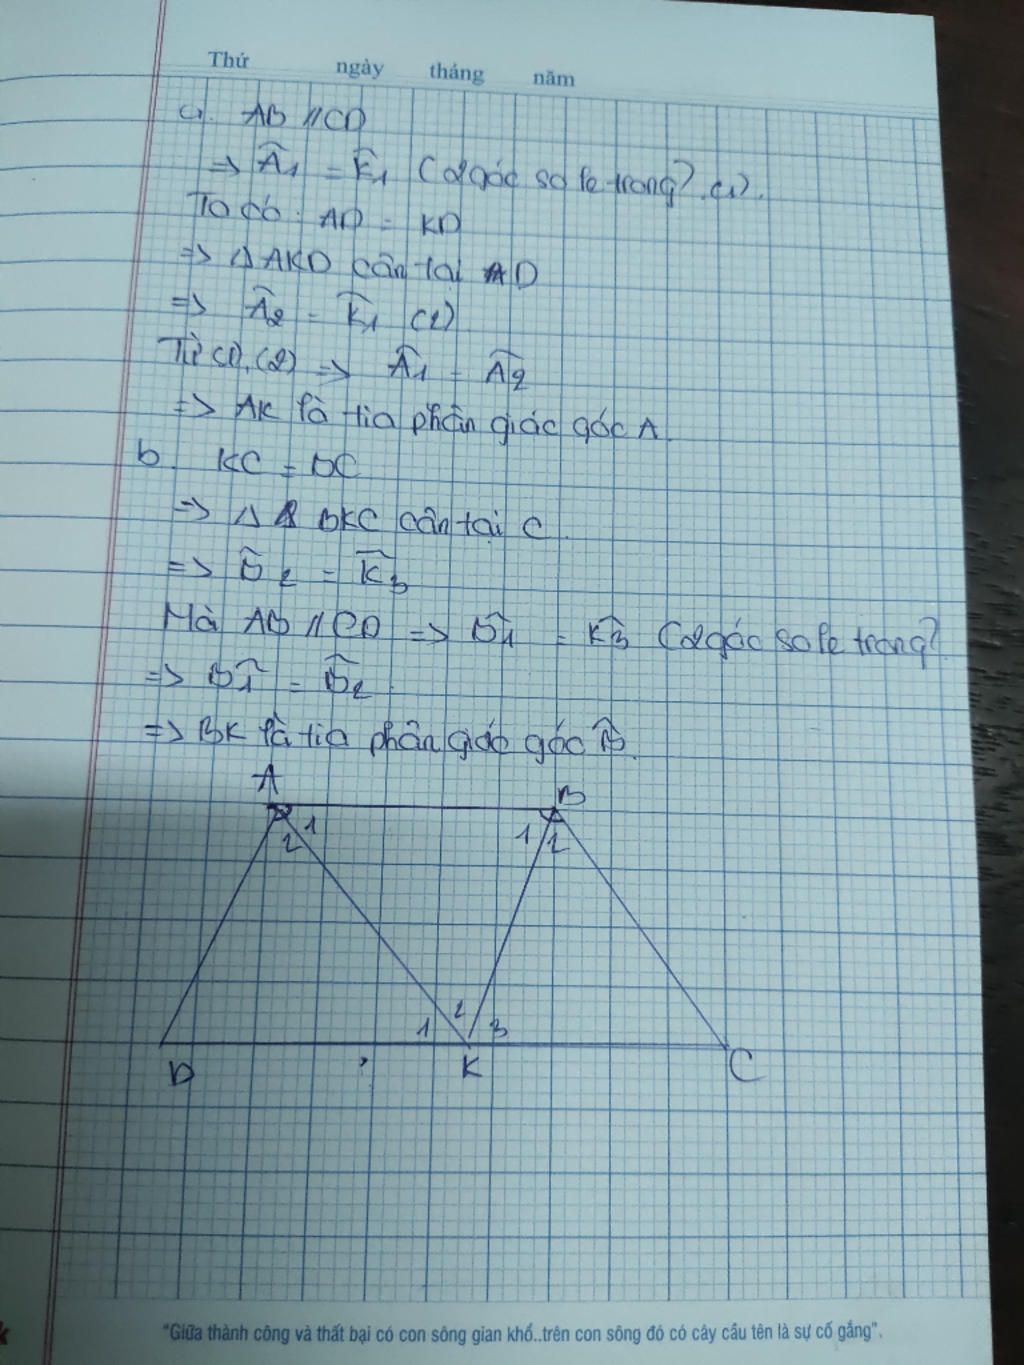 Thứ ngày tháng năm
a. AB // CD
=> Â1 = K̂1 (2 góc so le trong) (1).
Ta có: AD = KD
=> Δ AKD cân tại D
=> Â2 = K̂1 (2)
Từ (1), (2) => Â1 = Â2
=> AK là tia phân giác góc A.
b. KC = BC
=> Δ BKC cân tại C.
=> B̂2 = K̂3
Mà AB // CD => B̂1 = K̂3 (2 góc so le trong)
=> B̂1 = B̂2.
=> BK là tia phân giác góc B̂.
A B
1 2 1 2
1 2 3
D K C
"Giữa thành công và thất bại có con sông gian khổ..trên con sông đó có cây cầu tên là sự cố gắng".